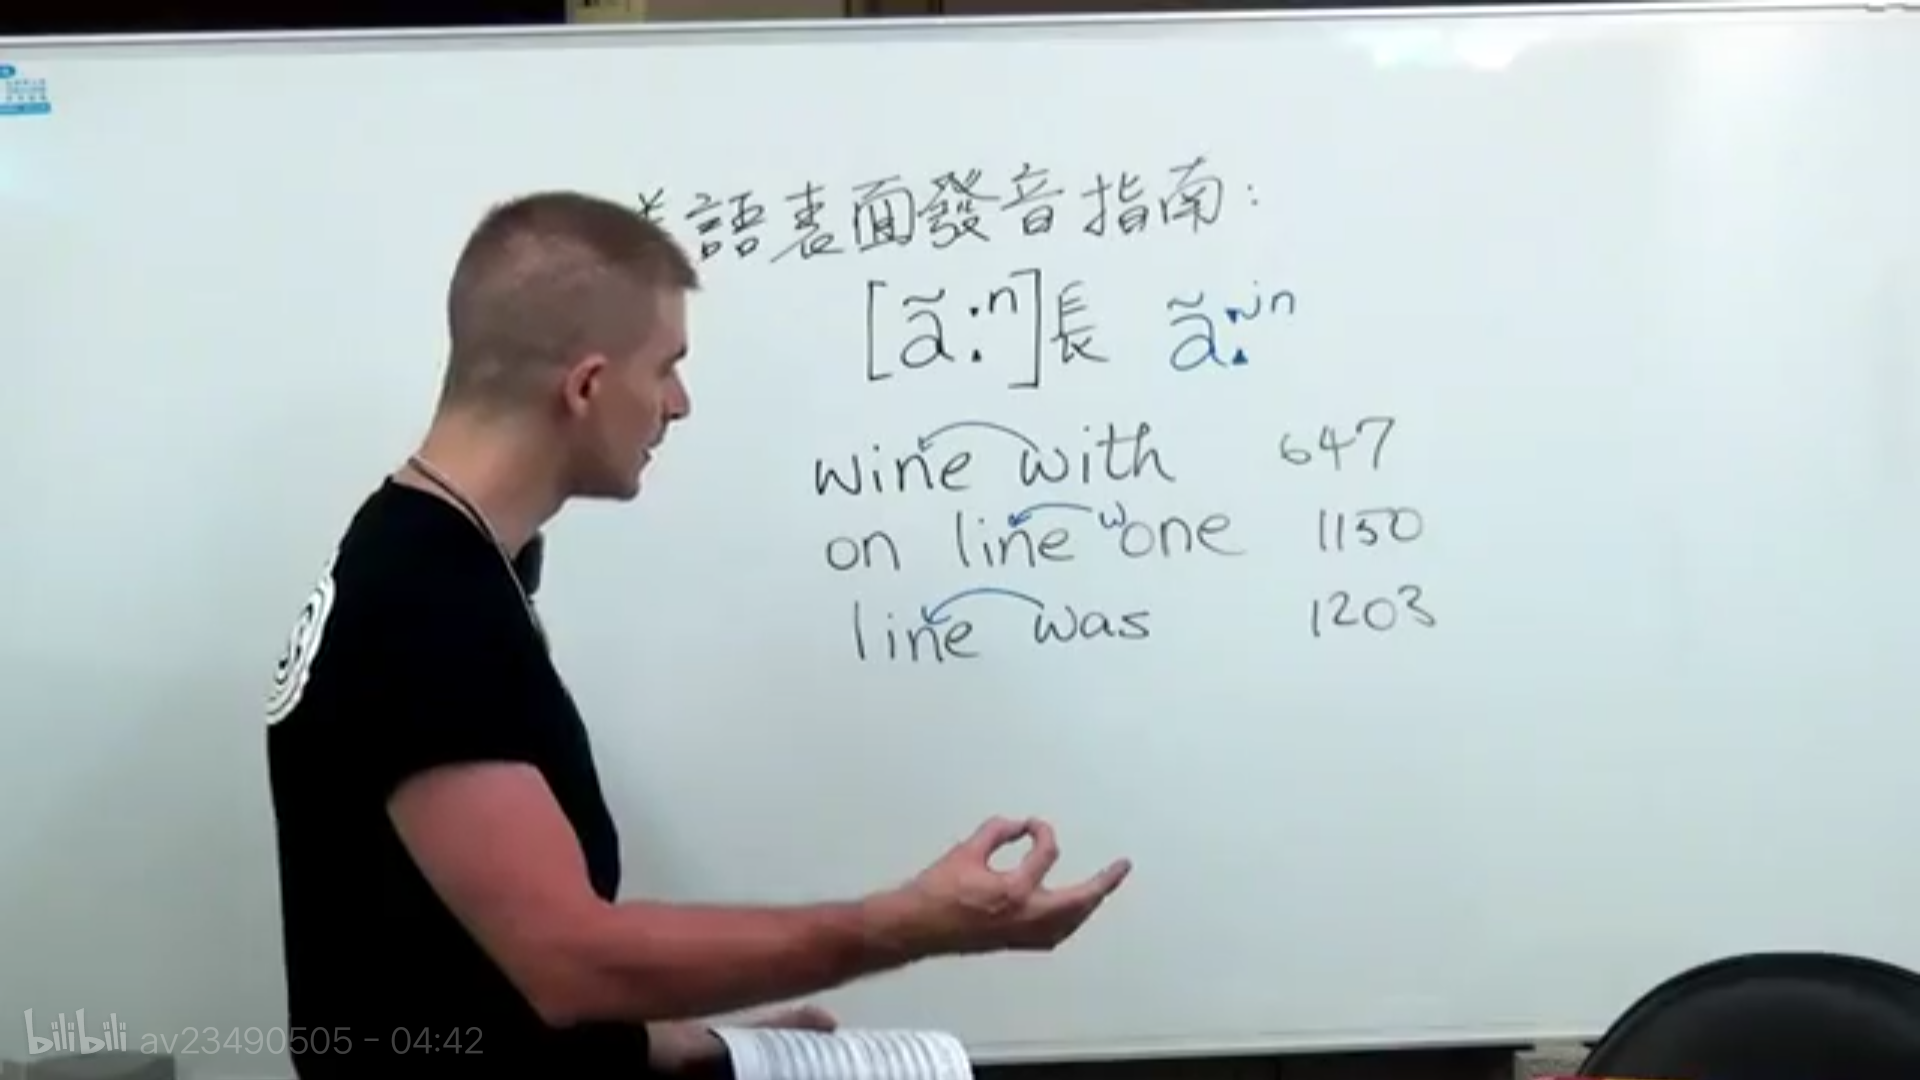 語表面發音指南:
[ã:ⁿ]長 ã:ʲⁿ
wine with 647
on line ʷone 1150
line was 1203
bilibili av23490505 - 04:42